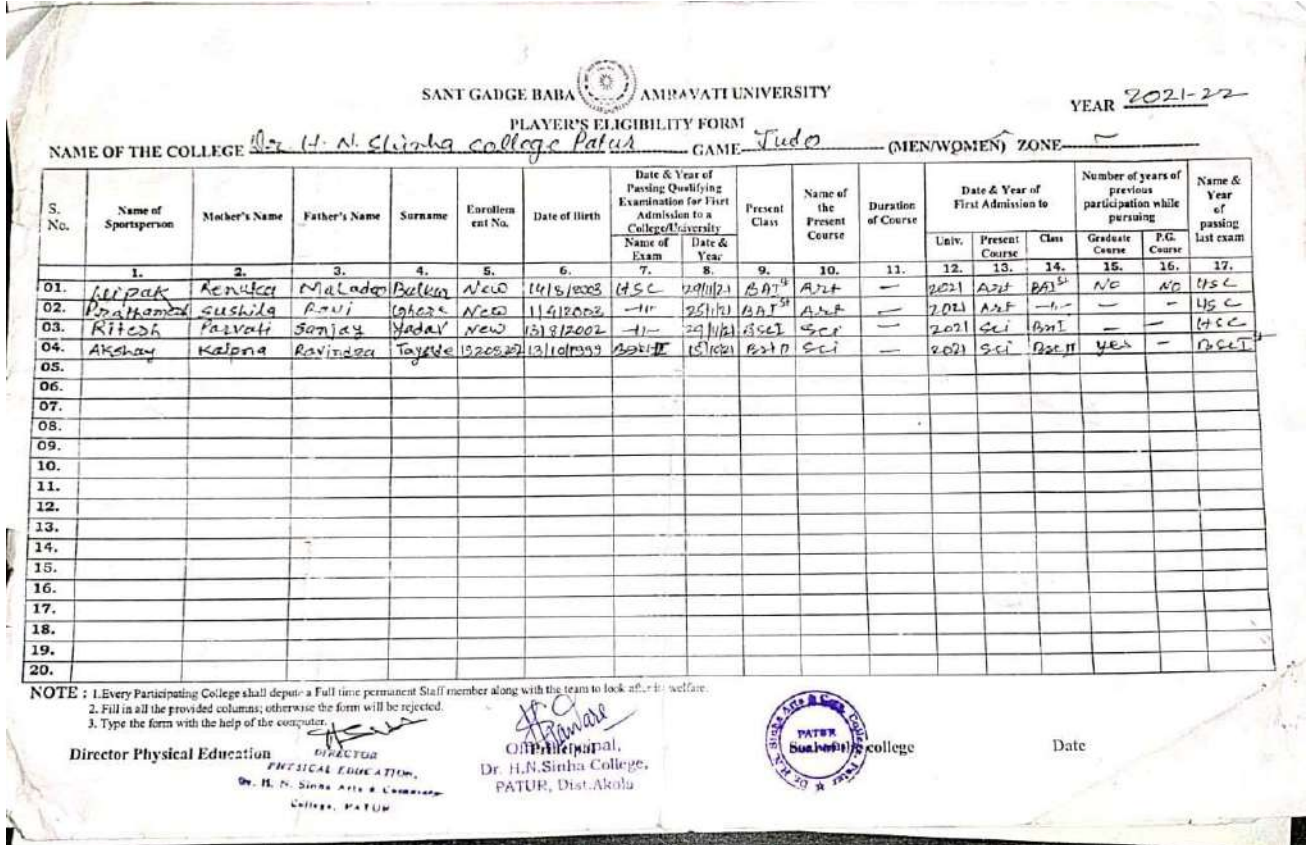 SANT GADGE BABA AMRAVATI UNIVERSITY
YEAR 2021-22
PLAYER'S ELIGIBILITY FORM
NAME OF THE COLLEGE Dr. H. N. Sinha college Patur GAME Judo (MEN/WOMEN) ZONE
S. No. Name of Sportsperson Mother's Name Father's Name Surname Enrollem ent No. Date of Birth Date & Year of Passing Qualifying Examination for First Admission to a College/University Present Class Name of the Present Course Duration of Course Date & Year of First Admission to Number of years of previous participation while pursuing Name & Year of passing last exam
Name of Exam Date & Year Univ. Present Course Class Graduate Course P.G. Course
1. 2. 3. 4. 5. 6. 7. 8. 9. 10. 11. 12. 13. 14. 15. 16. 17.
01. Renuka New 14/8/2003 HSC 29/11/21 BA Ist Art — 2021 Art BA Ist NO NO HSC
02. Sushila Ravi New 1/4/2003 -11- 25/1/21 BA Ist Art — 2021 Art -1- — — HSC
03. Ritesh Parvati Sanjay Yadav New 13/8/2002 -11- 29/11/21 BSCI Sci — 2021 Sci — — HSC
04. Akshay Kalpna Ravindra Tayede 13/10/1999 Sci — 2021 Sci BSC II yes — BSC I
05.
06.
07.
08.
09.
10.
11.
12.
13.
14.
15.
16.
17.
18.
19.
20.
NOTE : 1.Every Participating College shall depute a Full time permanent Staff member along with the team to look after its welfare.
2. Fill in all the provided columns; otherwise the form will be rejected.
3. Type the form with the help of the computer.
Director Physical Education
DIRECTOR
PHYSICAL EDUCATION,
Dr. H. N. Sinha Arts & Commerce
College, PATUR
Dr. H.N.Sinha College,
PATUR, Dist.Akola
PATUR
college
Date